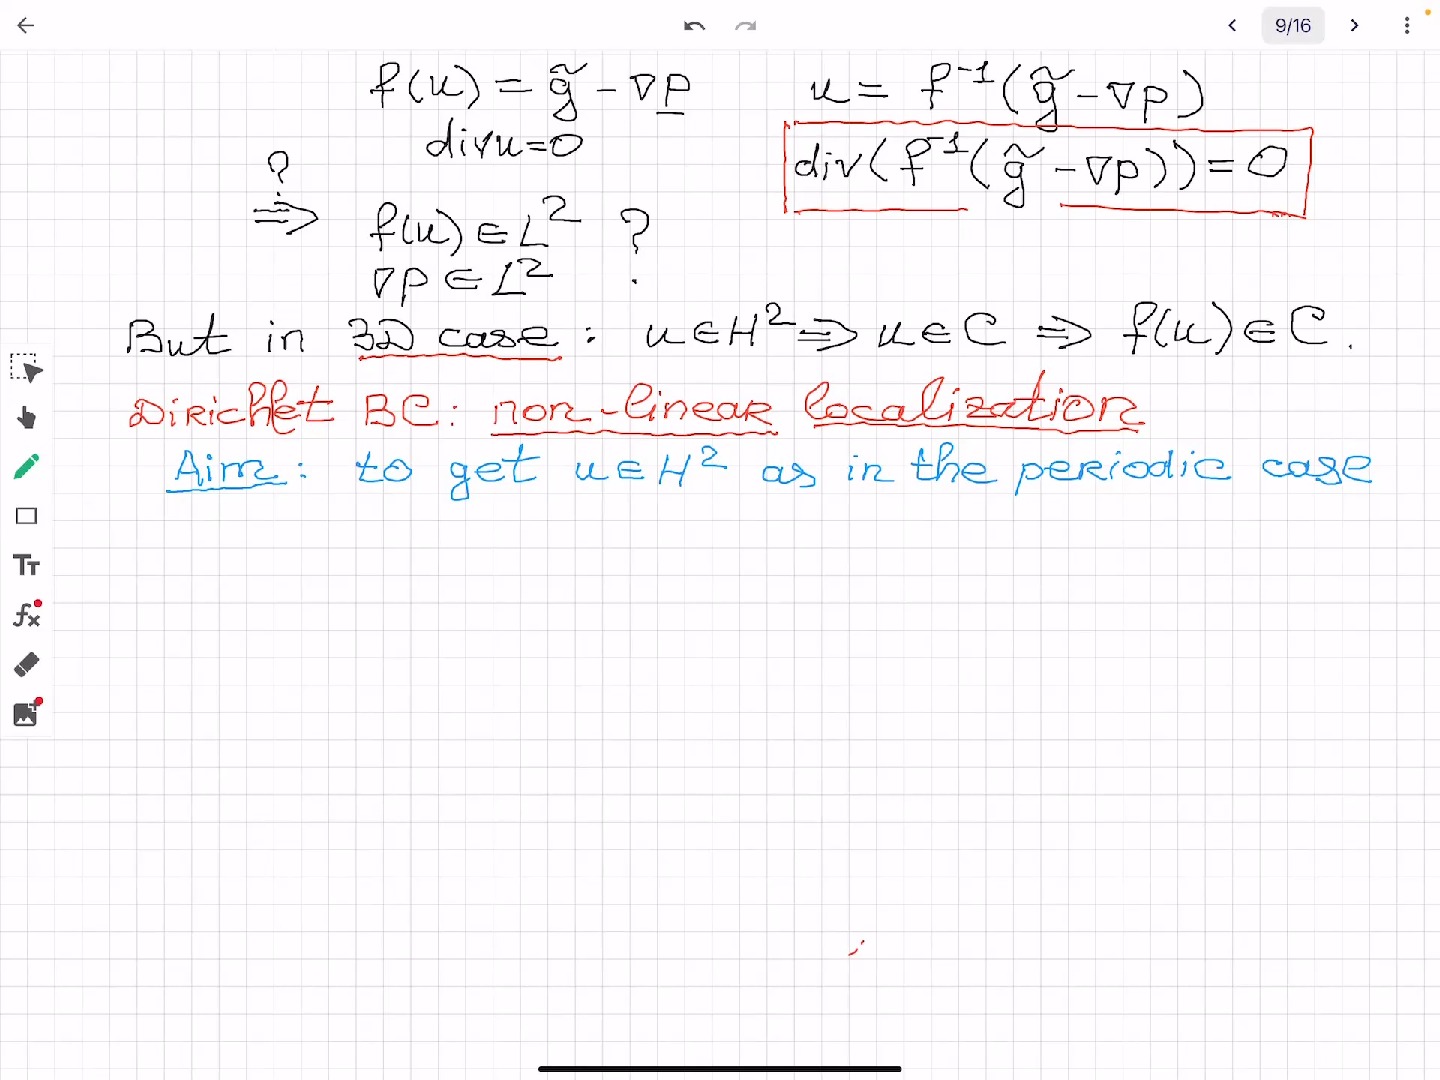 9/16
f(u) = g̃ - ∇p
u = f⁻¹(g̃ - ∇p)
div u = 0
div(f⁻¹(g̃ - ∇p)) = 0
?
⇒ f(u) ∈ L² ?
∇p ∈ L²
But in 3D case : u ∈ H² ⇒ u ∈ C ⇒ f(u) ∈ C.
Dirichlet BC: non-linear localization
Aim: to get u ∈ H² as in the periodic case
Tт
fx